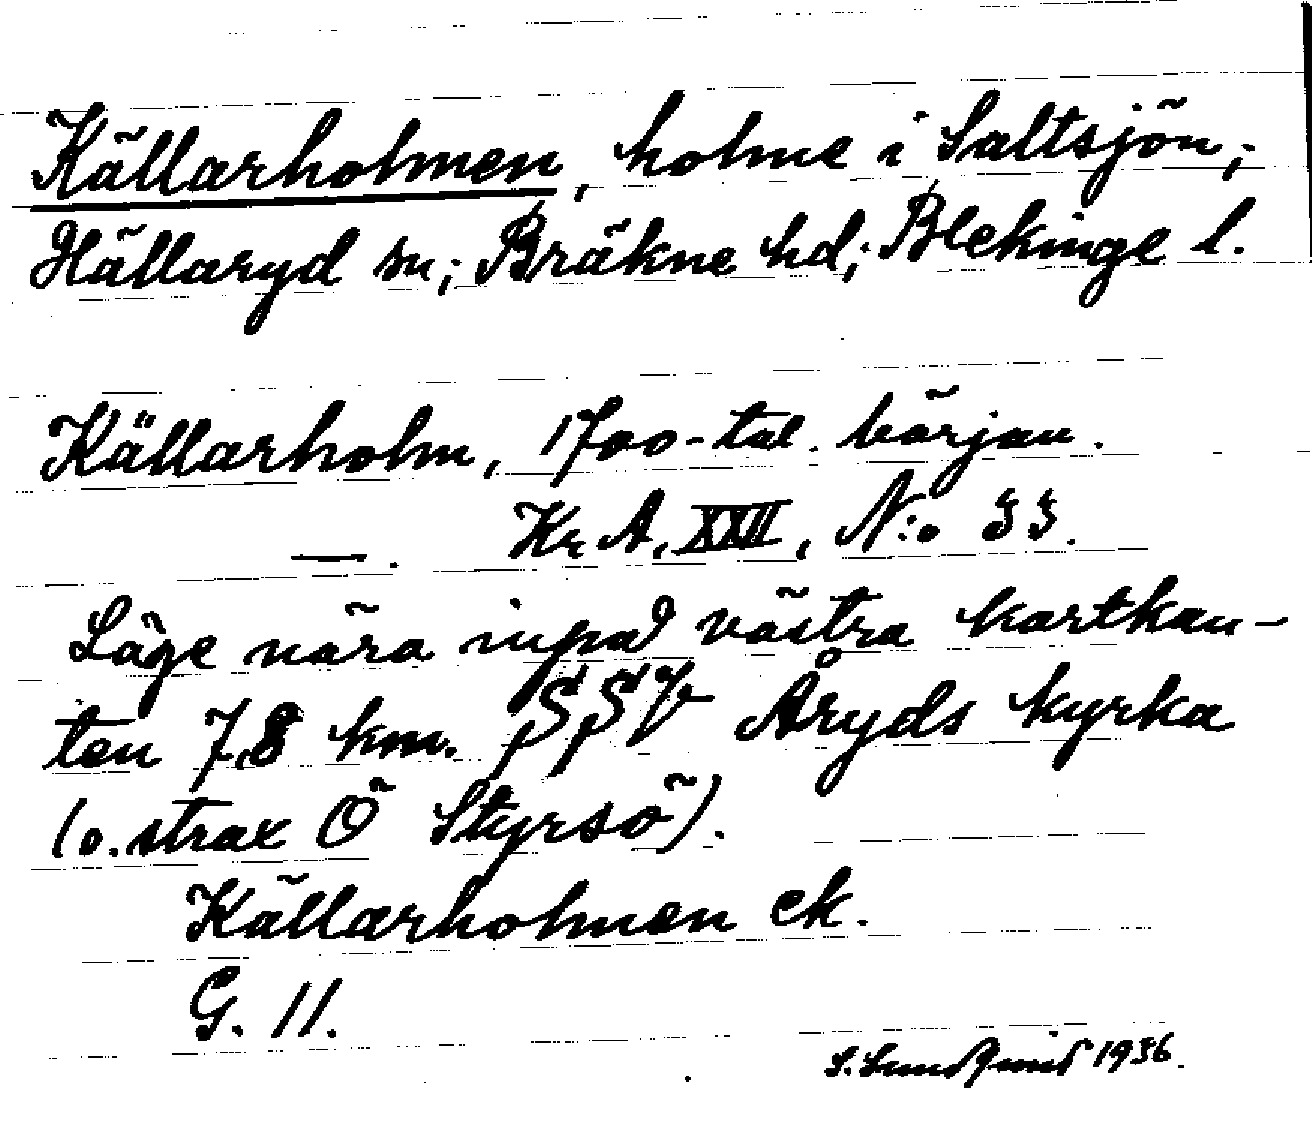 Källarholmen, holme i Saltsjön;
Hällaryd sn; Bräkne hd; Blekinge l.
Källarholm, 1700-tal. början.
—. Kr. A. XXII, N:o 33.
Läge nära invid västra kartkan-
ten 7,8 km. SSV Åryds kyrka
(o. strax Ö Styrsö).
Källarholmen ek.
G. 11.
S. Sundquist 1936.